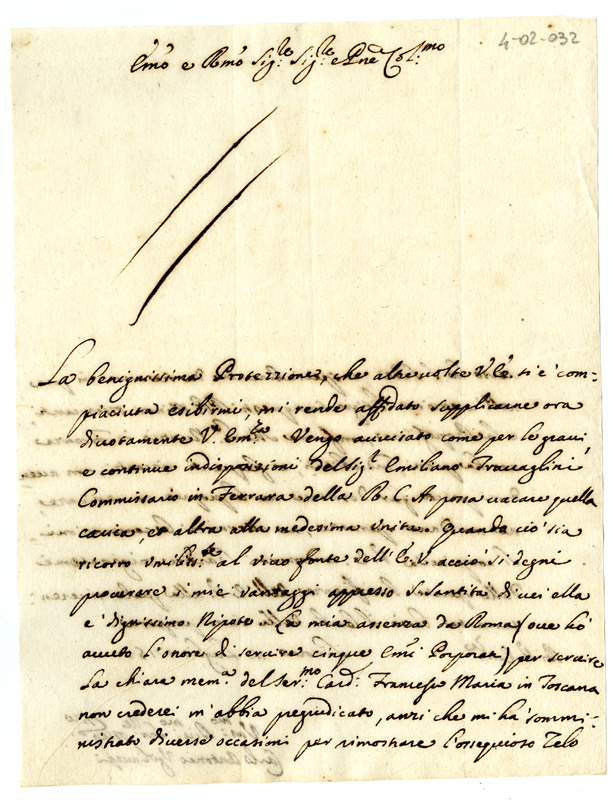 4-02-032
Emo e Rmo Sig.re Sig.re e Pne Col.mo
La benignissima Protezzione, che altre volte V. E. si è com-
piaciuta esibirmi, mi rende affidato supplicarne ora
divotamente V. Em.za. Vengo avvisato come per le gravi
e continue indisposizioni del Sig.r Emiliano Travaglini
Commissario in Ferrara della R. C. A. possa vacare quella
carica, et altra alla medesima unita. Quando ciò sia
ricorro umiliss.te al vivo fonte dell'E. V. acciò si degni
procurare i miei vantaggi appresso S. Santità di cui ella
è dignissimo Nipote. La mia assenza da Roma (ove hò
avuto l'onore di servire cinque Emi Porporati) per servire
la chiara mem.a del Ser.mo Card. Francesco Maria in Toscana
non crederei m'abbia pregiudicato, anzi che mi hà sommi-
nistrato diverse occasioni per rimostrare l'ossequioso Zelo